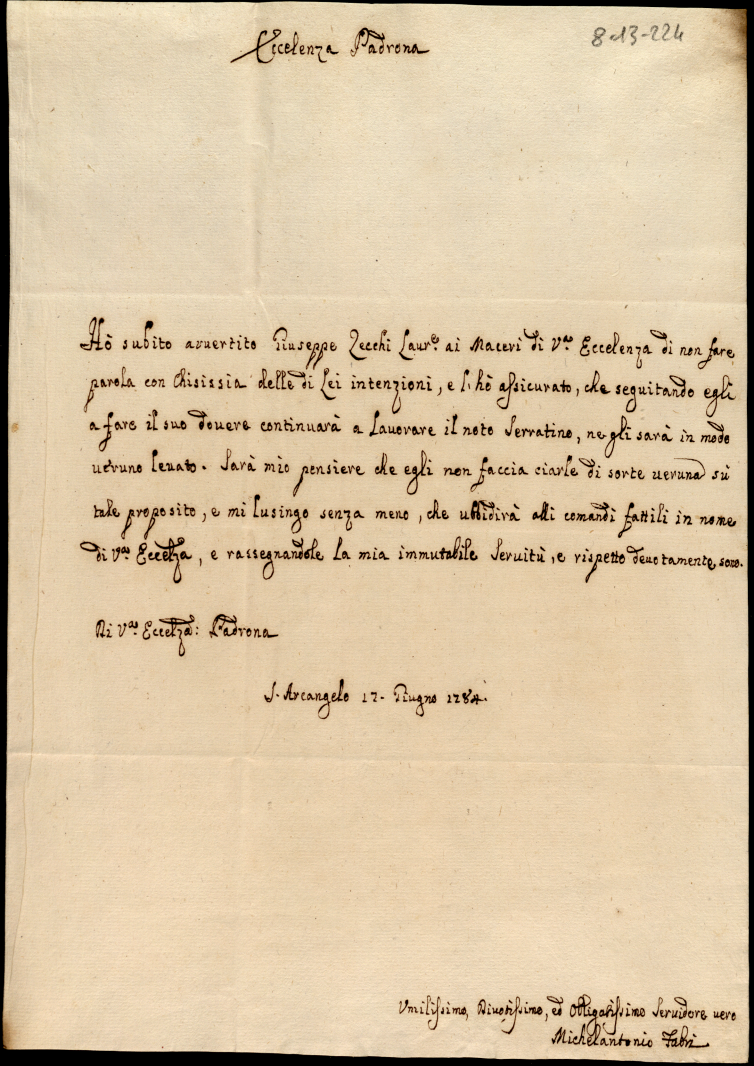 8-13-224
Eccelenza Padrona
Hò subito avvertito Giuseppe Zecchi Laur.e ai Maceri di V.ra Eccelenza di non fare
parola con Chisissia delle di Lei intenzioni, e l'hò assicurato, che seguitando egli
a fare il suo dovere continuarà a Lavorare il noto Serratino, ne gli sarà in modo
veruno levato. Sarà mio pensiere che egli non faccia ciarle di sorte veruna sù
tale proposito, e mi lusingo senza meno, che ubbidirà alli comandi fattili in nome
di V.ra Eccelza, e rassegnandole La mia immutabile Servitù, e rispetto devotamente sono.
Di V.ra Eccelza: Padrona
S. Arcangelo 17. Giugno 1784.
Umilissimo, Divotissimo, ed Obbligatissimo Servidore vero
Michelantonio Fabri